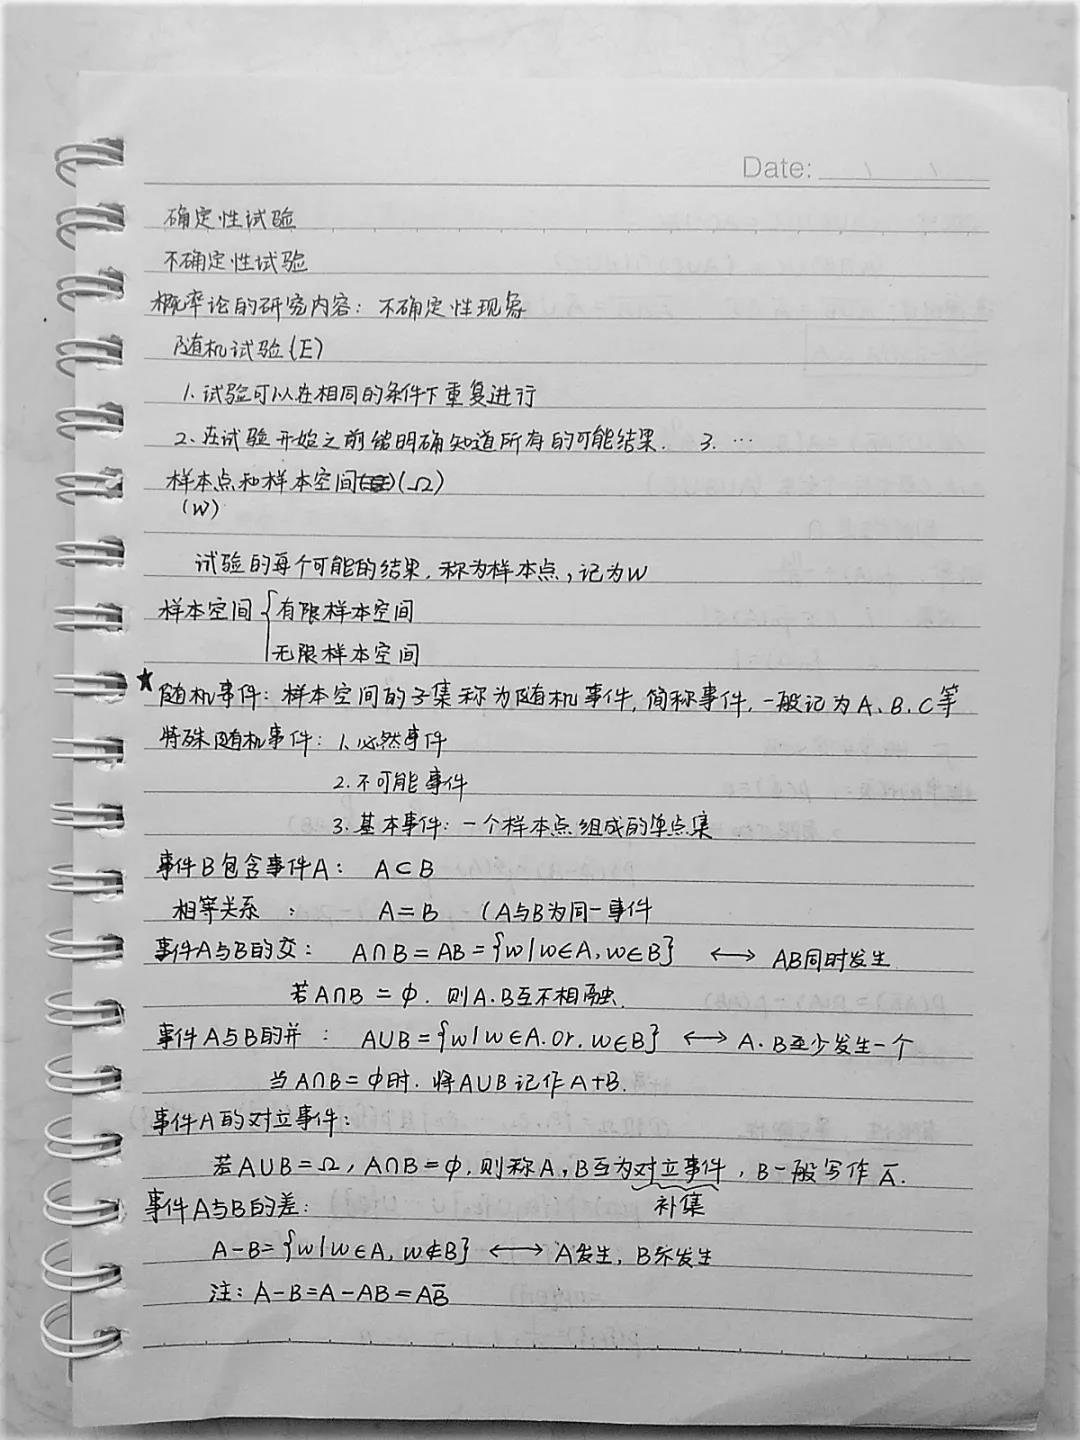 Date: / /
确定性试验
不确定性试验
概率论的研究内容: 不确定性现象
随机试验(E)
1. 试验可以在相同的条件下重复进行
2. 在试验开始之前能明确知道所有的可能结果. 3. …
样本点和样本空间(Ω)
(w)
试验的每个可能的结果, 称为样本点, 记为w
样本空间{有限样本空间
无限样本空间
★随机事件: 样本空间的子集称为随机事件, 简称事件, 一般记为A、B、C等
特殊随机事件: 1. 必然事件
2. 不可能事件
3. 基本事件: 一个样本点组成的单点集
事件B包含事件A: A⊂B
相等关系: A=B (A与B为同一事件
事件A与B的交: A∩B=AB={w|w∈A, w∈B} ⟷ AB同时发生
若A∩B=φ. 则A.B互不相融.
事件A与B的并: A∪B={w|w∈A. or. w∈B} ⟷ A. B至少发生一个
当A∩B=φ时. 将A∪B记作A+B.
事件A的对立事件:
若A∪B=Ω, A∩B=φ, 则称A, B互为对立事件, B一般写作A̅.
补集
事件A与B的差:
A-B={w|w∈A, w∉B} ⟷ A发生, B不发生
注: A-B=A-AB=AB̅